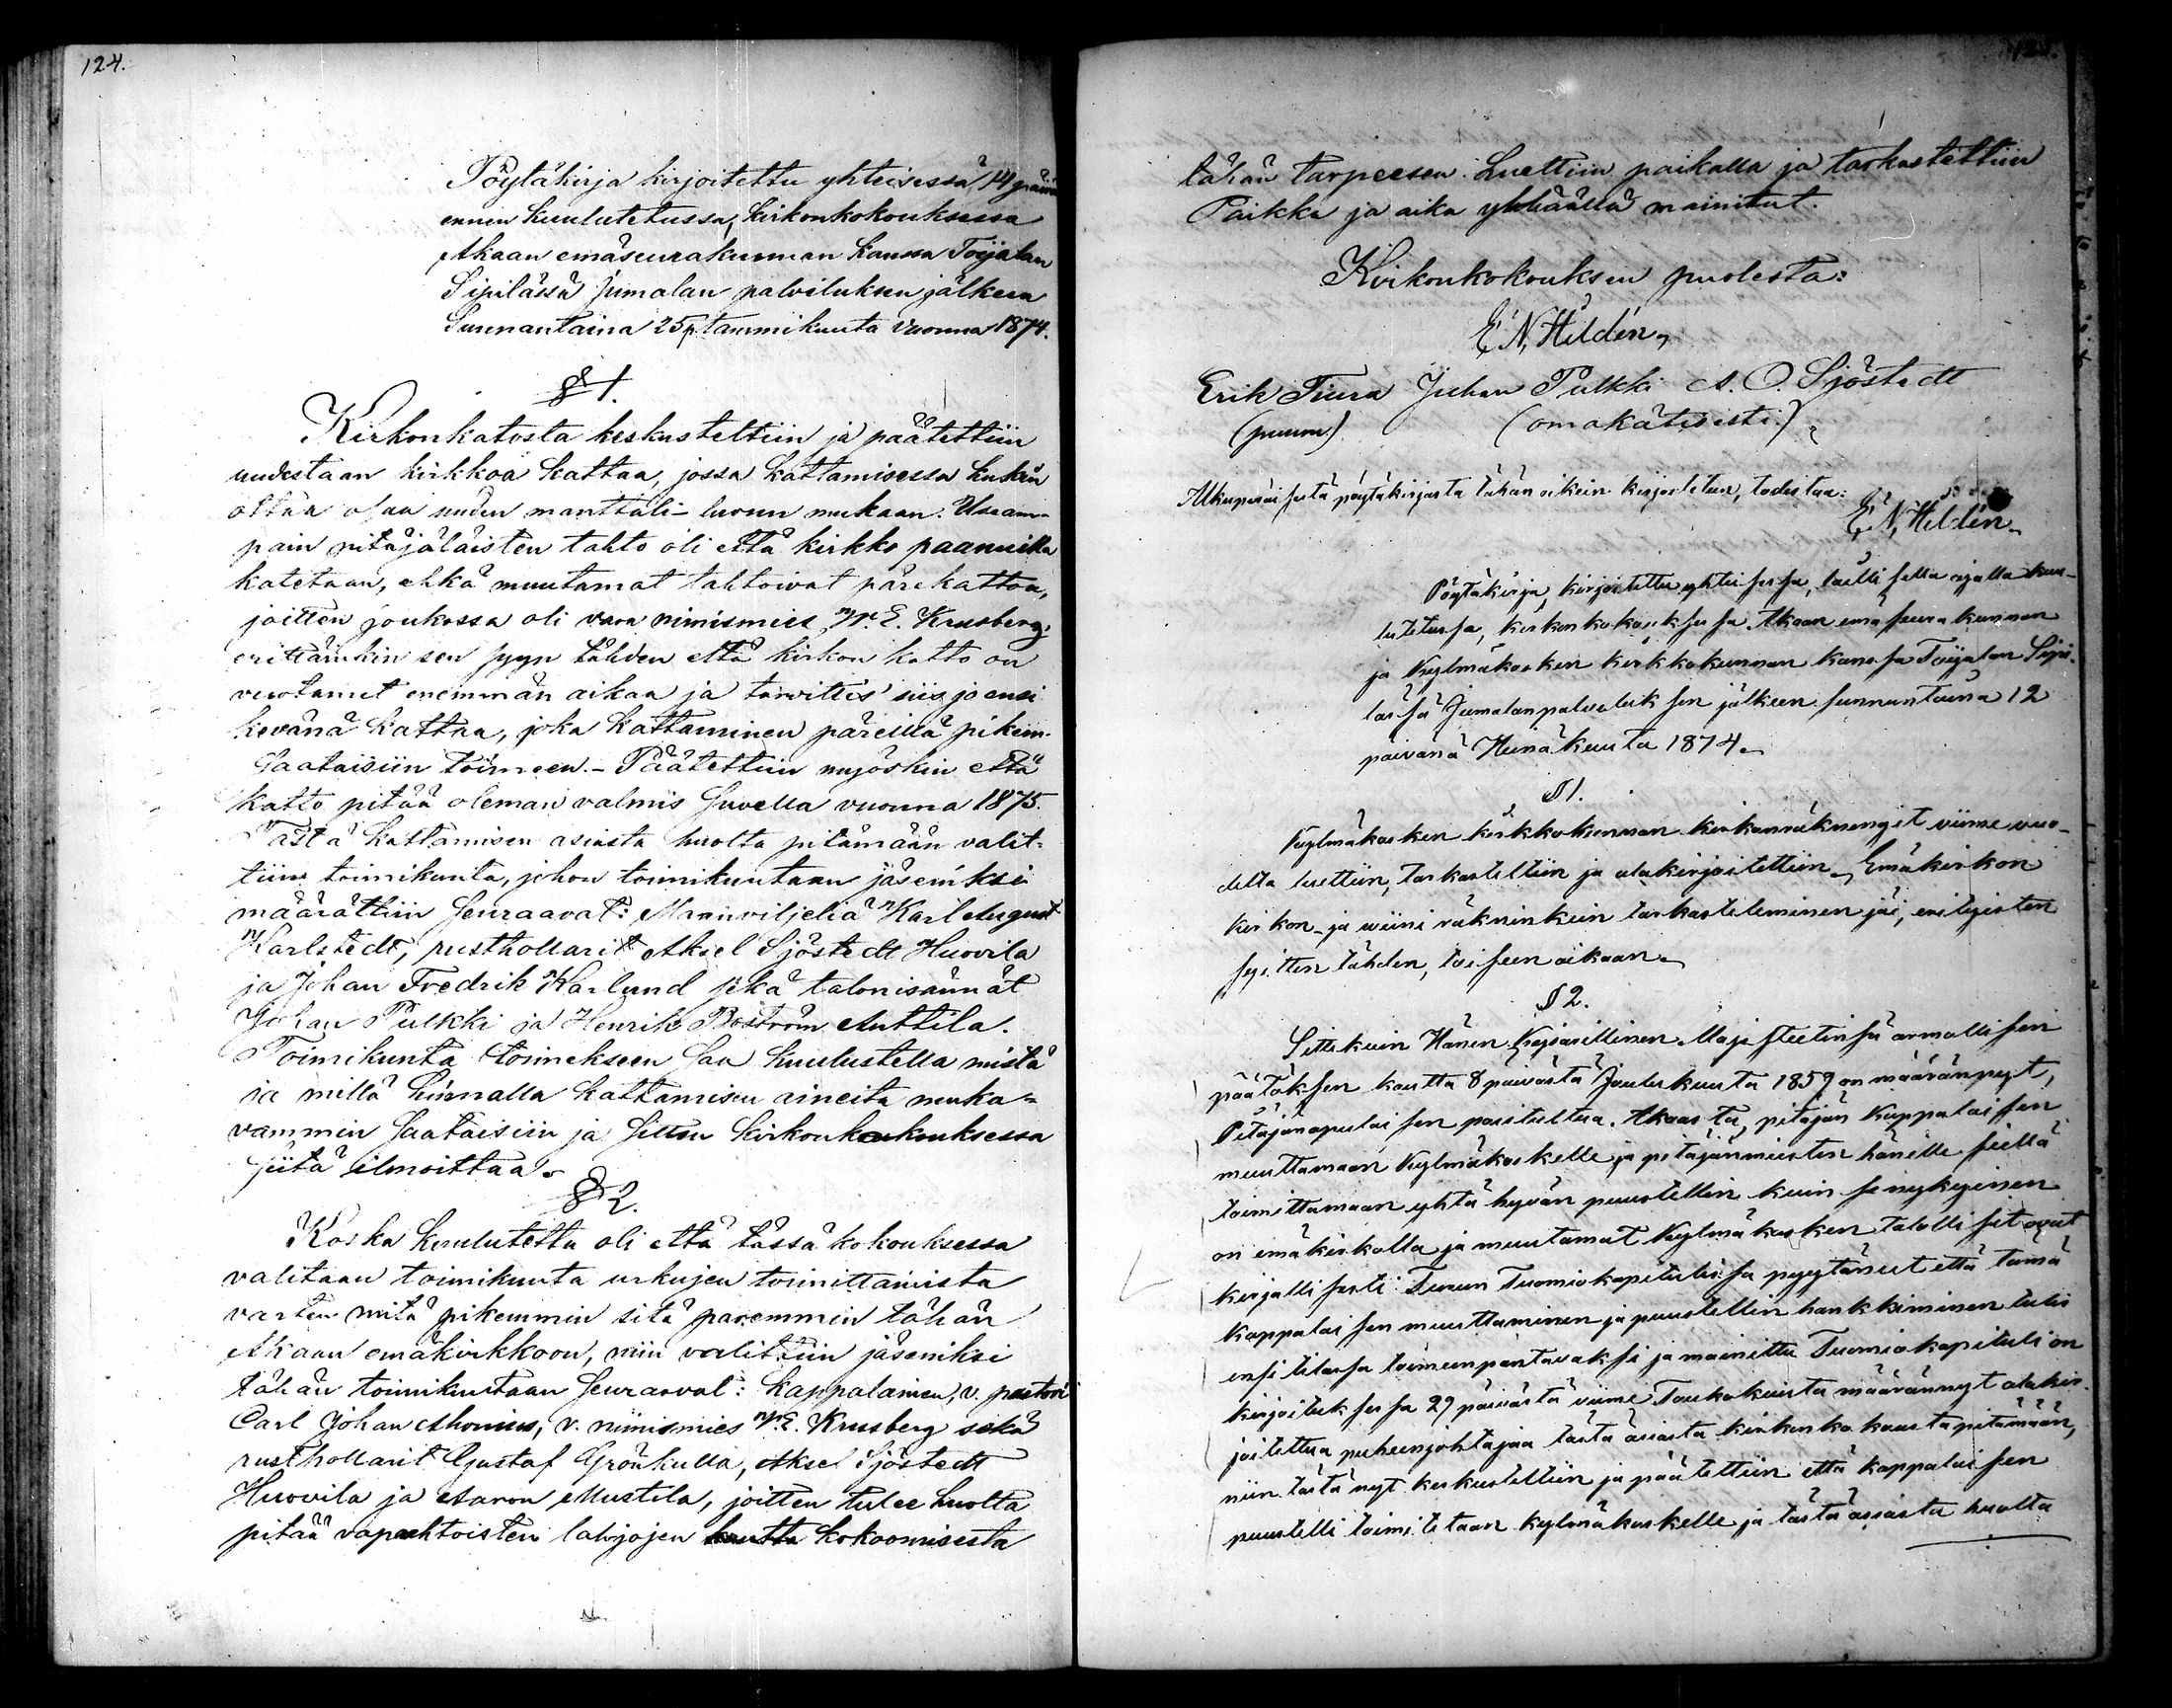 124.
Pöytäkirja kirjoitettu yhteisessä, 14 päivää
ennen kuulutetussa, kirkonkokouksessa
Akaan emäseurakunnan kanssa Toijalan
Sipilässä Jumalan palveluksen jälkeen
Sunnuntaina 25 p. tammikuuta vuonna 1874.
§ 1.
Kirkonkatosta keskusteltiin ja päätettiin
uudestaan kirkkoa kattaa, jossa kattamisessa kukin
ottaa osaa uuden manttali-luvun mukaan. Useam-
pain pitäjäläisten tahto oli että kirkko paanuilla
katetaan, ehkä muutamat tahtoivat pärekattoa,
joitten joukossa oli vara nimismies W. E. Krusberg,
erittäinkin sen syyn tähden että kirkon katto on
vuotanut enemmän aikaa ja tarvittis' siis jo ensi
kevänä kattaa, joka kattaminen päreillä pikem.
Saataisiin toimeen. - Päätettiin myöskin että
katto pitää oleman valmis Suvella vuonna 1875.
Tästä kattamisen asiasta huolta pitämään valit-
tiin toimikunta, johon toimikuntaan jäseniksi
määrättiin Seuraavat: Maanviljeliä Karl August
Karlstedt, rusthollarit Aksel Sjöstedt Huovila
ja Johan Fredrik Karlund sekä talonisännät
Johan Pulkki ja Henrik Boström Anttila.
Toimikunta toimekseen Saa kuulustella mistä
ja millä hinnalla kattamisen aineita muka-
vammin Saataisiin ja Sitten kirkonkokouksessa
siitä ilmoittaa.
§ 2.
Koska kuulutettu oli että tässä kokouksessa
valitaan toimikunta urkujen toimittamista
varten mitä pikemmin sitä paremmin tähän
Akaan emäkirkkoon, niin valittiin jäseniksi
tähän toimikuntaan Seuraavat: kappalainen, v. pastori
Carl Johan Ahonius, v. nimismies W. E. Krusberg sekä
rusthollarit Gustaf Grönkulla, Aksel Sjöstedt
Huovila ja Aaron Mustila, joitten tulee huolta
pitää vapaehtoisten lahjojen kautta kokoomisesta
tähän tarpeesen. Luettiin paikalla ja tarkastettiin
Paikka ja aika ylhäällä mainitut.
Kirkonkokouksen puolesta:
E. N. Hildén,
Erik Tiura Juhan Pulkki A. O. Sjöstedt
(puum.) (omakätisesti.)
Alkuperäisestä pöytäkirjasta tähän oikein kirjoitetun, todistaa:
E. N. Hildén.
Pöytäkirja, kirjoitettu yhteisessä, laillisella ajalla kuu-
lutetussa, kirkonkokouksessa Akaan emäseurakunnan
ja Kylmäkosken kirkkokunnan kanssa Toijalan Sipi-
lässä Jumalanpalveluksen jälkeen sunnuntaina 12
päivänä Heinäkuuta 1874.
§ 1.
Kylmäkosken kirkkokunnan kirkonräkningit viime vuo-
delta luettiin, tarkasteltiin ja alakirjoitettiin. Emäkirkon
kirkon- ja viini räkninkein tarkasteleminen jäi, erityisten
syitten tähden, toiseen aikaan.
§ 2.
Sittekuin Hänen Keisarillinen Majesteetinsä armollisen
päätöksen kautta 8 päivästä Joulukuuta 1859 on määrännyt,
Pitäjänapulaisen paritettua. Akaasta, pitäjän Kappalaisen
muuttamaan Kylmäkoskelle ja pitäjänmiesten hänelle siellä
toimittamaan yhtä hyvän puustellin kuin se nykyinen
on emäkirkolla ja muutamat Kylmäkosken talolliset ovat
kirjallisesti Turun Tuomiokapitulissa pyytäneet että tämä
Kappalaisen muuttaminen ja puustellin hankkiminen tulis
ensi tilassa toimeenpantavaksi ja mainittu Tuomiokapituli on
kirjoituksessa 29 päivästä viime Toukokuuta määrännyt alakir-
joitettua puheenjohtajaa tästä asiasta kirkonkokousta pitämään,
niin tästä nyt keskusteltiin ja päätettiin että kappalaisen
puustelli toimitetaan Kylmäkoskelle ja tästä asiasta huolta